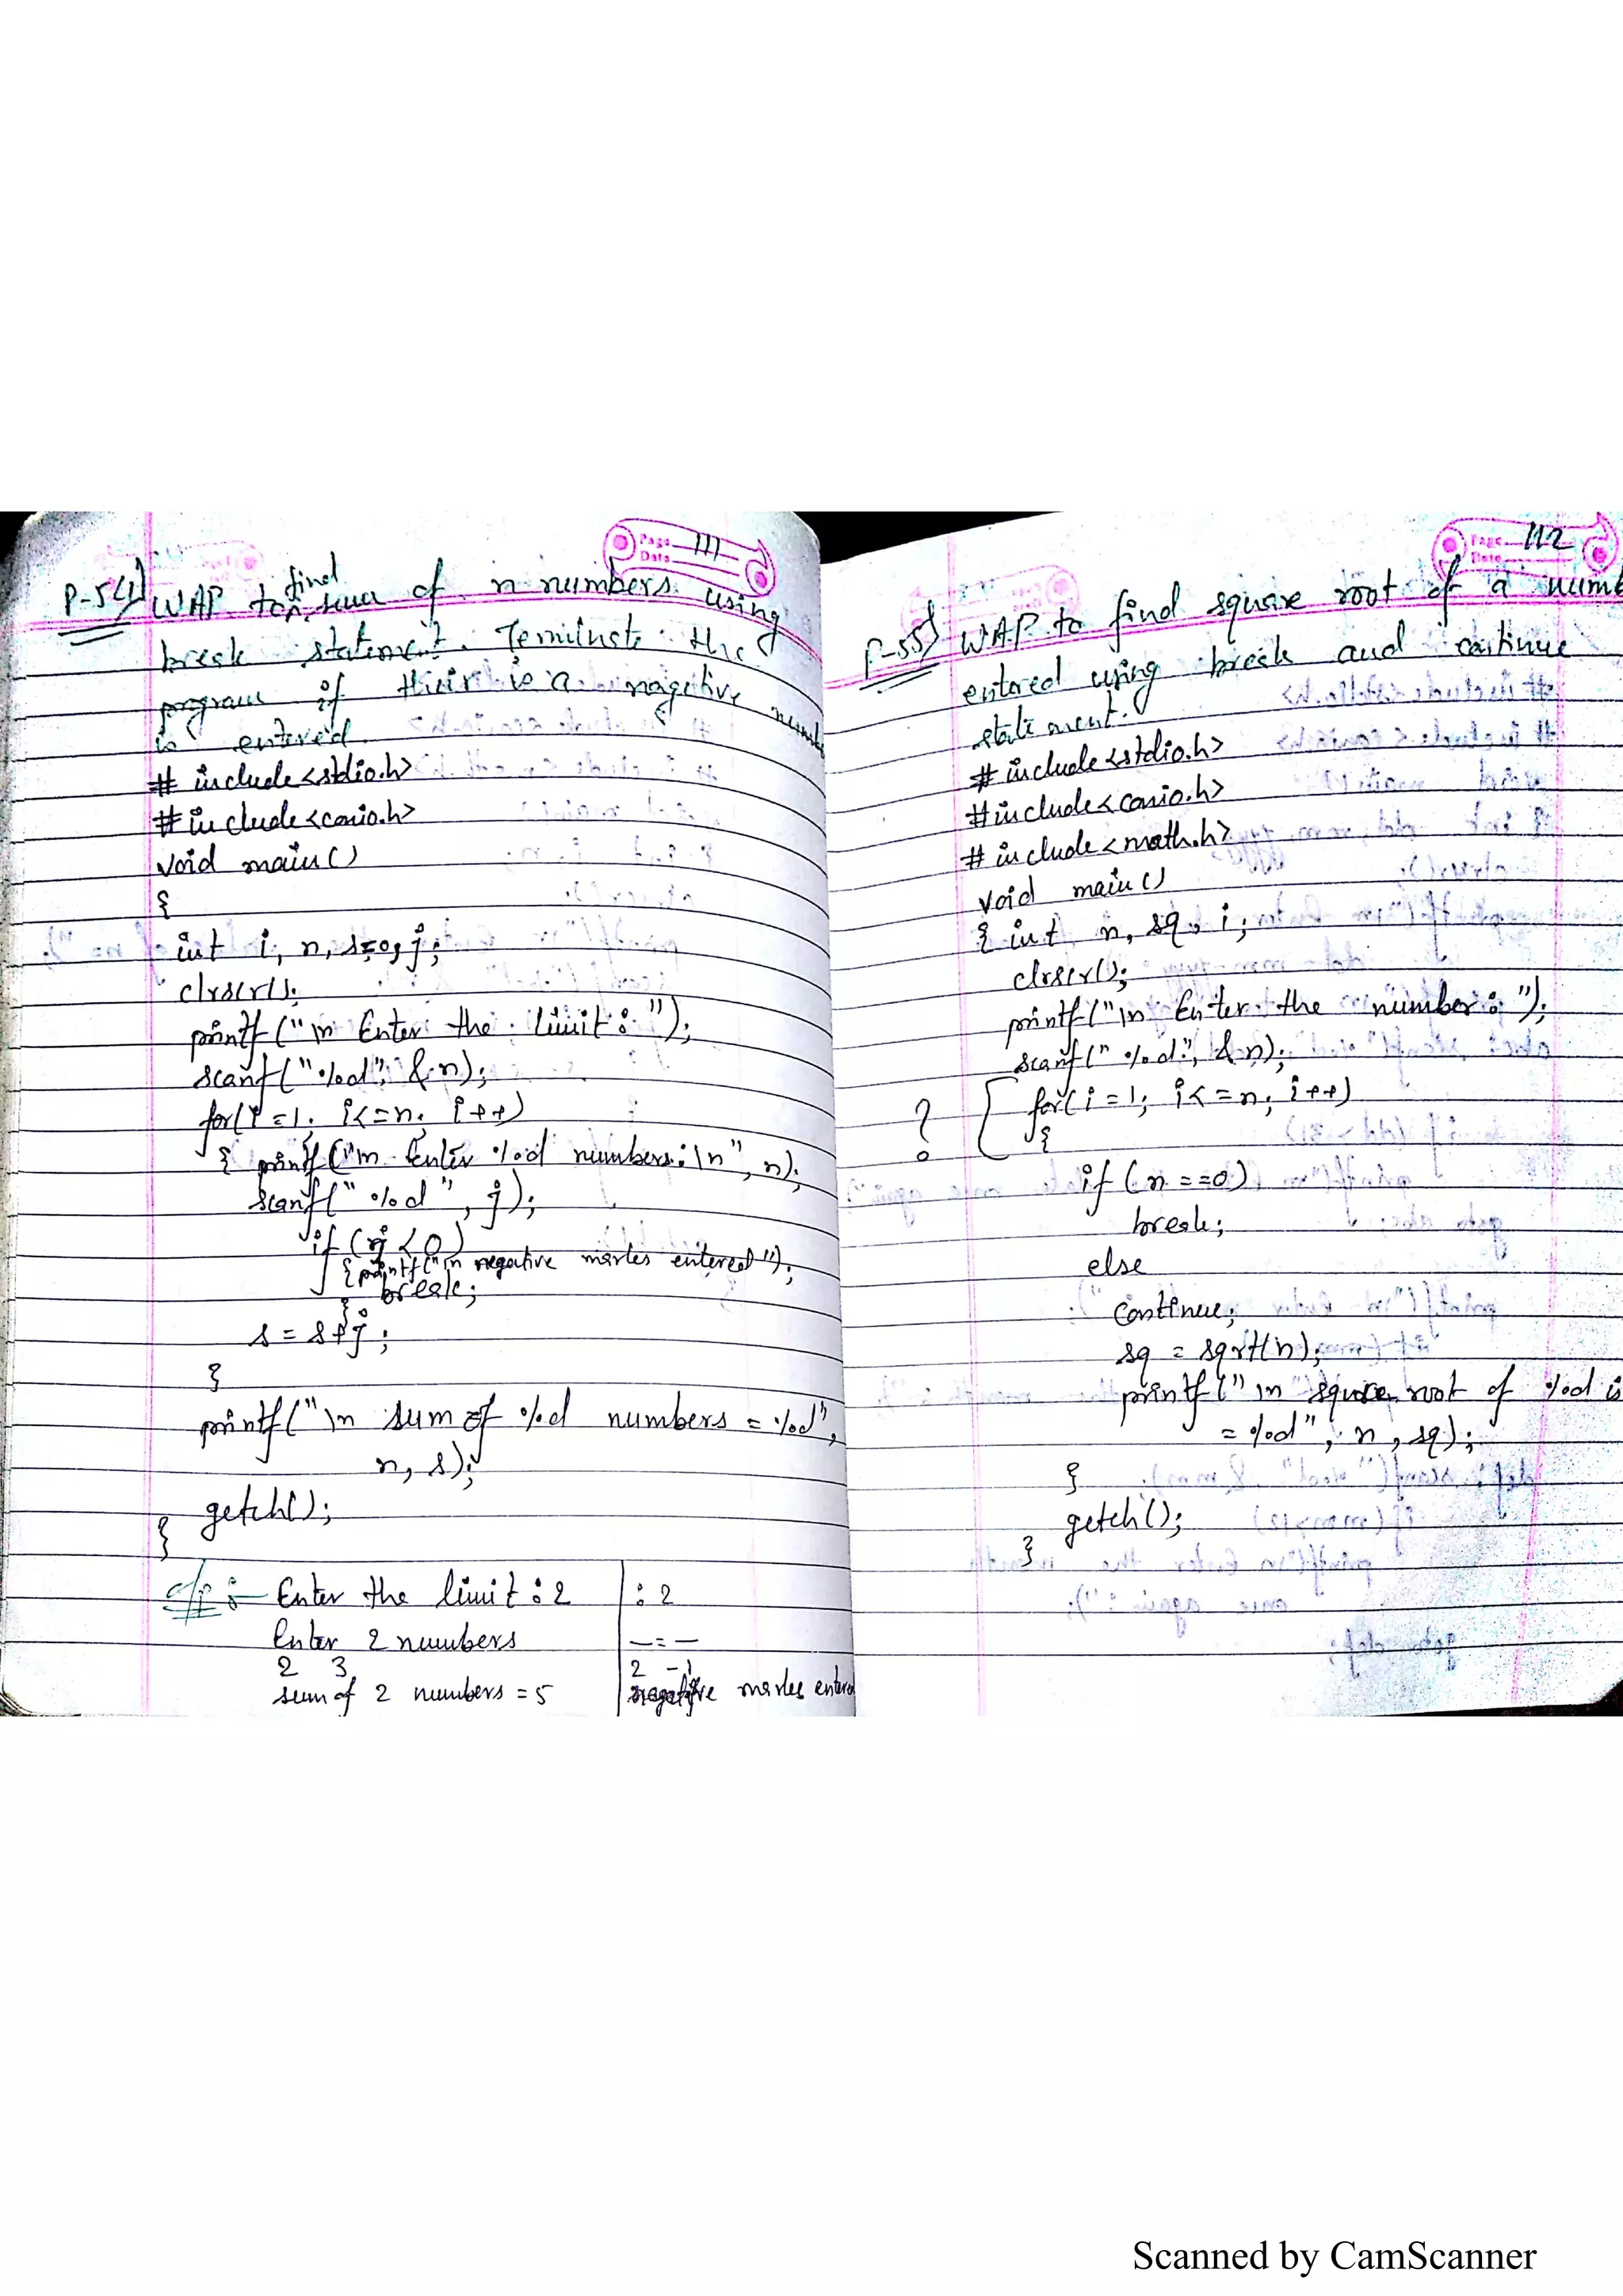 Page 111
Date
P-54) WAP to find sum of n numbers using
break statement. Terminate the
program if their is a nagetive number
is entered.
# include<stdio.h>
# include<conio.h>
void main()
{
int i, n, s=0, j;
clrscr();
printf("\n Enter the limit : ");
scanf("%d", &n);
for(i=1; i<=n; i++)
{ printf("\n Enter %d numbers:\n", n);
scanf("%d", j);
if (j < 0)
{ printf("\n negative marks entered");
break;
}
s = s+j;
}
printf("\n sum of %d numbers = %d",
n, s);
getch();
}
o/p :- Enter the limit : 2 | : 2
Enter 2 numbers | — = —
2 3 | 2 -1
sum of 2 numbers = 5 | negative marks entered
Page 112
Date
P-55) WAP to find square root of a numb
entered using break and continue
statement.
# include<stdio.h>
#include<conio.h>
# include<math.h>
void main()
{ int n, sq, i;
clrscr();
printf("\n Enter the number : ");
scanf("%d", &n);
? for(i=1; i<=n; i++)
{
if (n==0)
break;
else
continue;
sq = sqrt(n);
printf("\n square root of %d is
= %d", n, sq);
}
getch();
}
Scanned by CamScanner